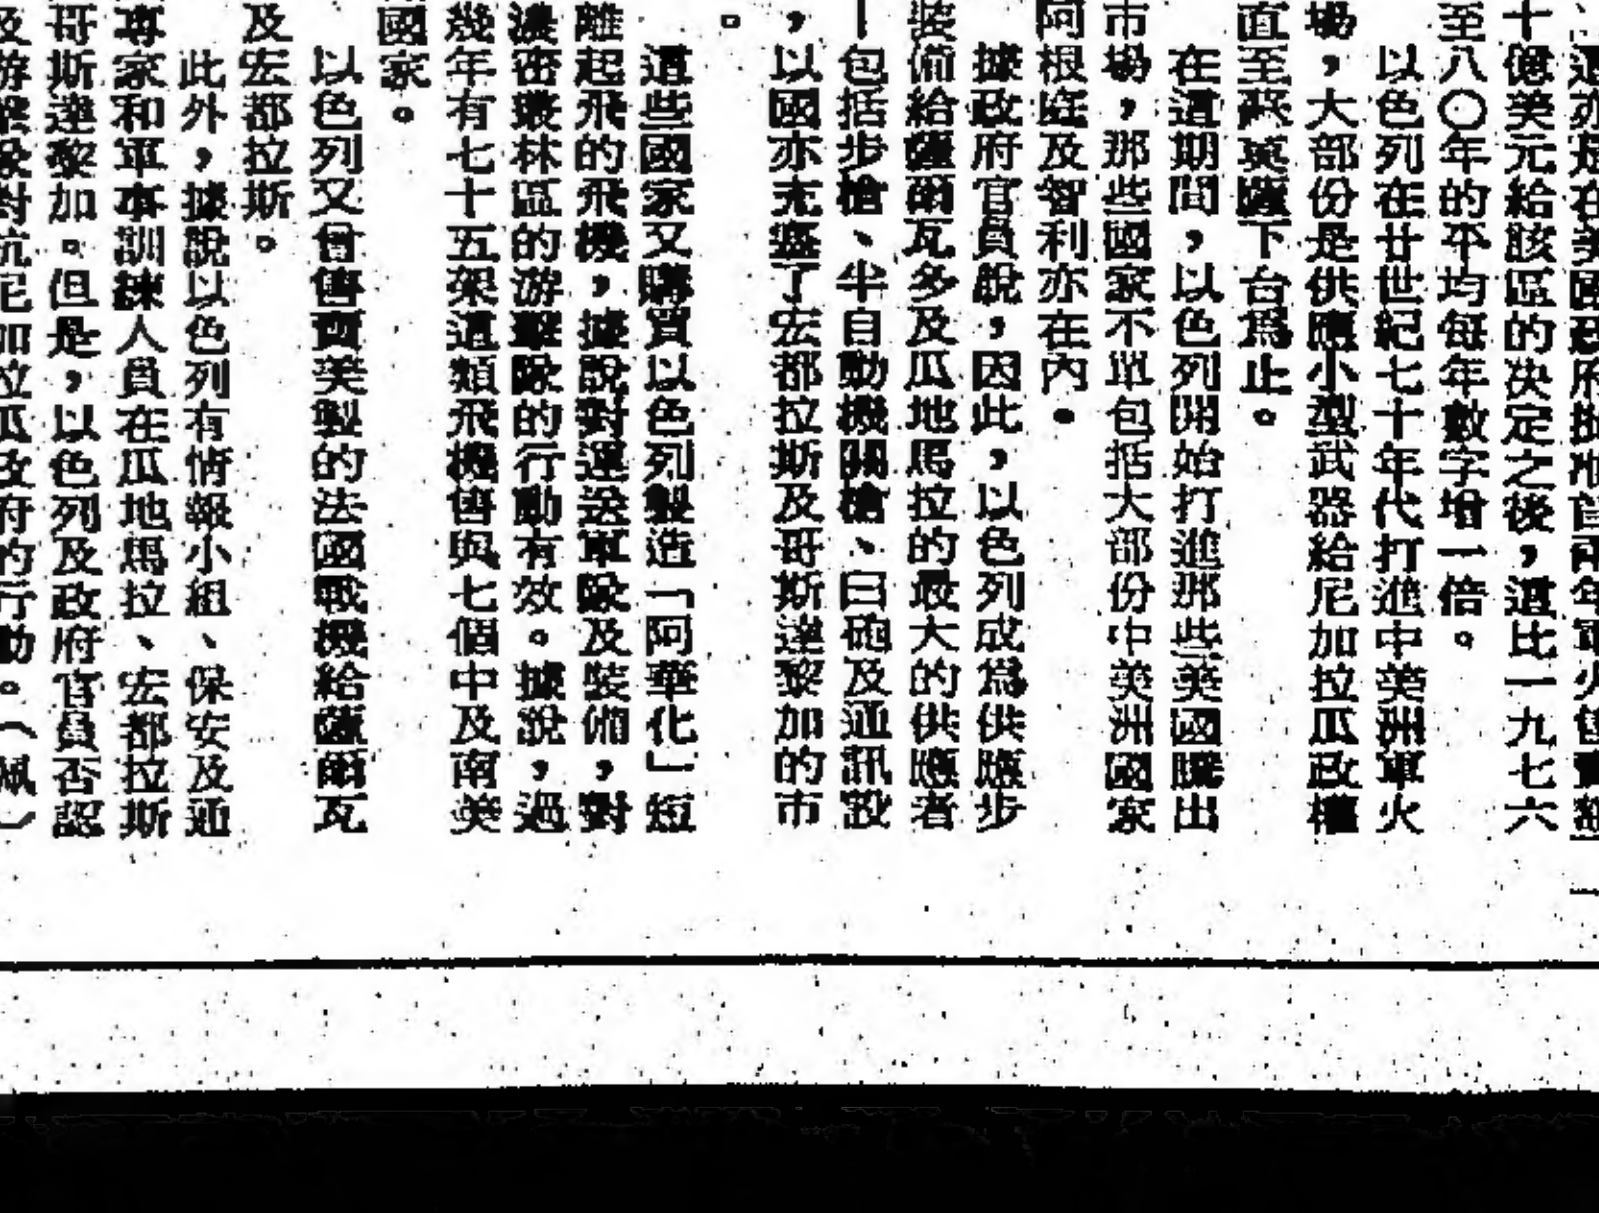 這亦是在美國政府批准首兩年軍火售賣額
十億美元給該區的決定之後，這比一九七六
至八〇年的平均每年數字增一倍。
以色列在廿世紀七十年代打進中美洲軍火
場，大部份是供應小型武器給尼加拉瓜政權
直至蘇慕薩下台為止。
在這期間，以色列開始打進那些美國騰出
市場，那些國家不單包括大部份中美洲國家
阿根庭及智利亦在內。
據政府官員說，因此，以色列成為供應步
裝備給薩爾瓦多及瓜地馬拉的最大的供應者
—包括步槍、半自動機關槍、臼砲及通訊設
，以國亦充塞了宏都拉斯及哥斯達黎加的市
。
這些國家又購買以色列製造「阿華化」短
離起飛的飛機，據說對運送軍隊及裝備，對
濃密叢林區的游擊隊的行動有效。據說，過
幾年有七十五架這類飛機售與七個中及南美
國家。
以色列又曾售賣美製的法國戰機給薩爾瓦
及宏都拉斯。
此外，據說以色列有情報小組、保安及通
專家和軍事訓練人員在瓜地馬拉、宏都拉斯
哥斯達黎加。但是，以色列及政府官員否認
及游擊隊對抗尼加拉瓜政府的行動。（佩）